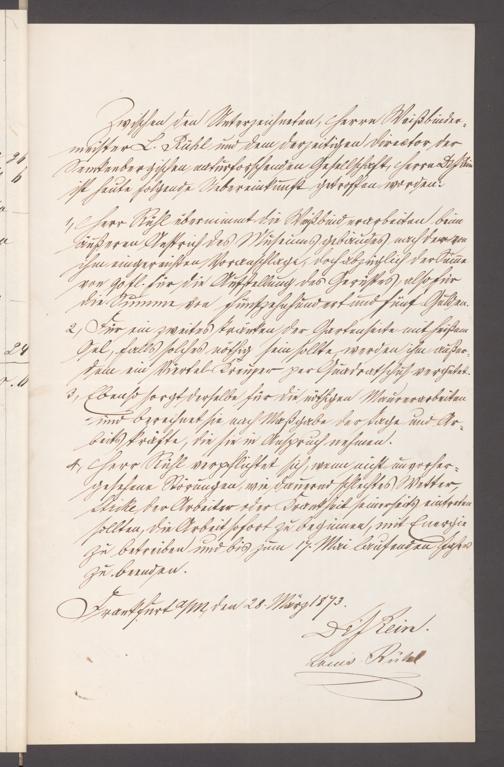 Zwischen den Unterzeichneten, Herrn Weißbinder-
meister L. Rühl und dem derzeitigen Director der
Senkenbergischen naturforschenden Gesellschaft, Herrn
ist heute folgende Uebereinkunft getroffen worden:
1, Herr Rühl übernimmt die Weißbinderarbeiten beim
äußeren Anstrich des Museums gebäudes nach dem von
ihm eingereichten Voranschlage, doch abzüglich der Summe
von für die Aufstellung des Gerüstes, also für
die Summe von fünfzehnhundert und fünf Gulden.
2, Für ein zweites tränken der Gartenseite mit heißem
Oel, falls solches nöthig sein sollte, werden ihm außer-
dem ein Viertel Kreuzer per Quadratschuh vergütet.
3, Ebenso sorgt derselbe für die nöthigen Maurerarbeiten
und berechnet sie nach Maßgabe der Tage und Ar-
beitskräfte, die sie in Anspruch nehmen.
4, Herr Rühl verpflichtet sich, wenn nicht unvorher-
gesehene Störungen, wie dauernd schlechtes Wetter,
Strike der Arbeiter oder Krankheit seinerseits eintreten
sollten, die Arbeit sofort zu beginnen, mit Energie
zu betreiben und bis zum 17. Mai laufenden Jahres
zu beenden.
Frankfurt a/M, den 28. März 1873.
Louis Rühl